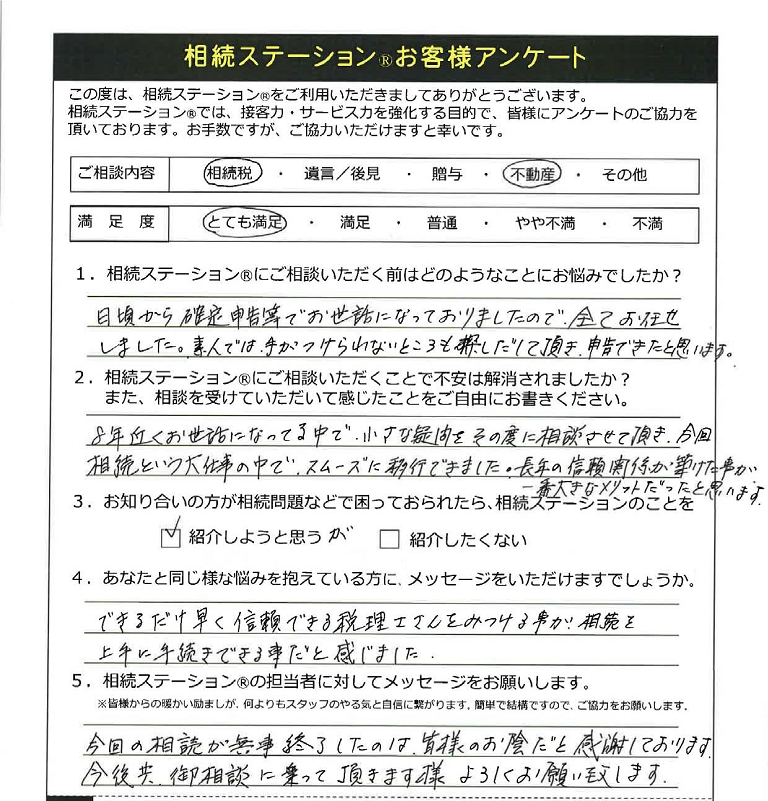 相続ステーション®お客様アンケート
この度は、相続ステーション®をご利用いただきましてありがとうございます。
相続ステーション®では、接客力・サービス力を強化する目的で、皆様にアンケートのご協力を
頂いております。お手数ですが、ご協力いただけますと幸いです。
ご相談内容 相続税 ・ 遺言／後見 ・ 贈与 ・ 不動産 ・ その他
満足度 とても満足 ・ 満足 ・ 普通 ・ やや不満 ・ 不満
1．相続ステーション®にご相談いただく前はどのようなことにお悩みでしたか？
日頃から確定申告等でお世話になっておりましたので、全てお任せ
しました。素人では手がつけられないところも探しだして頂き、申告できたと思います。
2．相続ステーション®にご相談いただくことで不安は解消されましたか？
また、相談を受けていただいて感じたことをご自由にお書きください。
8年近くお世話になってる中で、小さな疑問をその度に相談させて頂き、今回
相続という大仕事の中で、スムーズに移行できました。長年の信頼関係が築けた事が
一番大きなメリットだったと思います。
3．お知り合いの方が相続問題などで困っておられたら、相続ステーションのことを
紹介しようと思うが 紹介したくない
4．あなたと同じ様な悩みを抱えている方に、メッセージをいただけますでしょうか。
できるだけ早く信頼できる税理士さんをみつける事が、相続を
上手に手続きできる事だと感じました。
5．相続ステーション®の担当者に対してメッセージをお願いします。
※皆様からの暖かい励ましが、何よりもスタッフのやる気と自信に繋がります。簡単で結構ですので、ご協力をお願いします。
今回の相続が無事終了したのは、皆様のお陰だと感謝しております。
今後共、御相談に乗って頂きます様よろしくお願い致します。